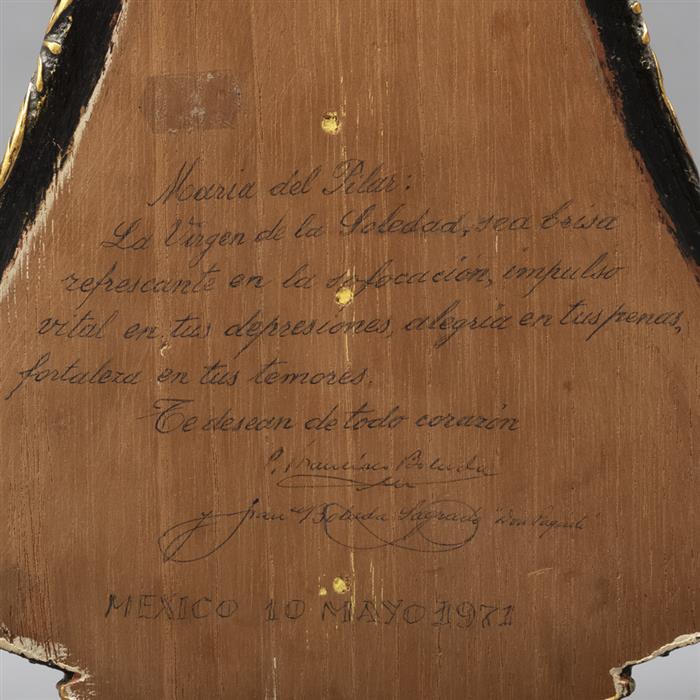 Maria del Pilar:
La Virgen de la Soledad, sea brisa
refrescante en la sofocación, impulso
vital en tus depresiones, alegría en tus penas,
fortaleza en tus temores.
Te desean de todo corazón
P. Francisco Boluda
y Fran Boluda Sagrado "Don Paquito"
MEXICO 10 MAYO 1971